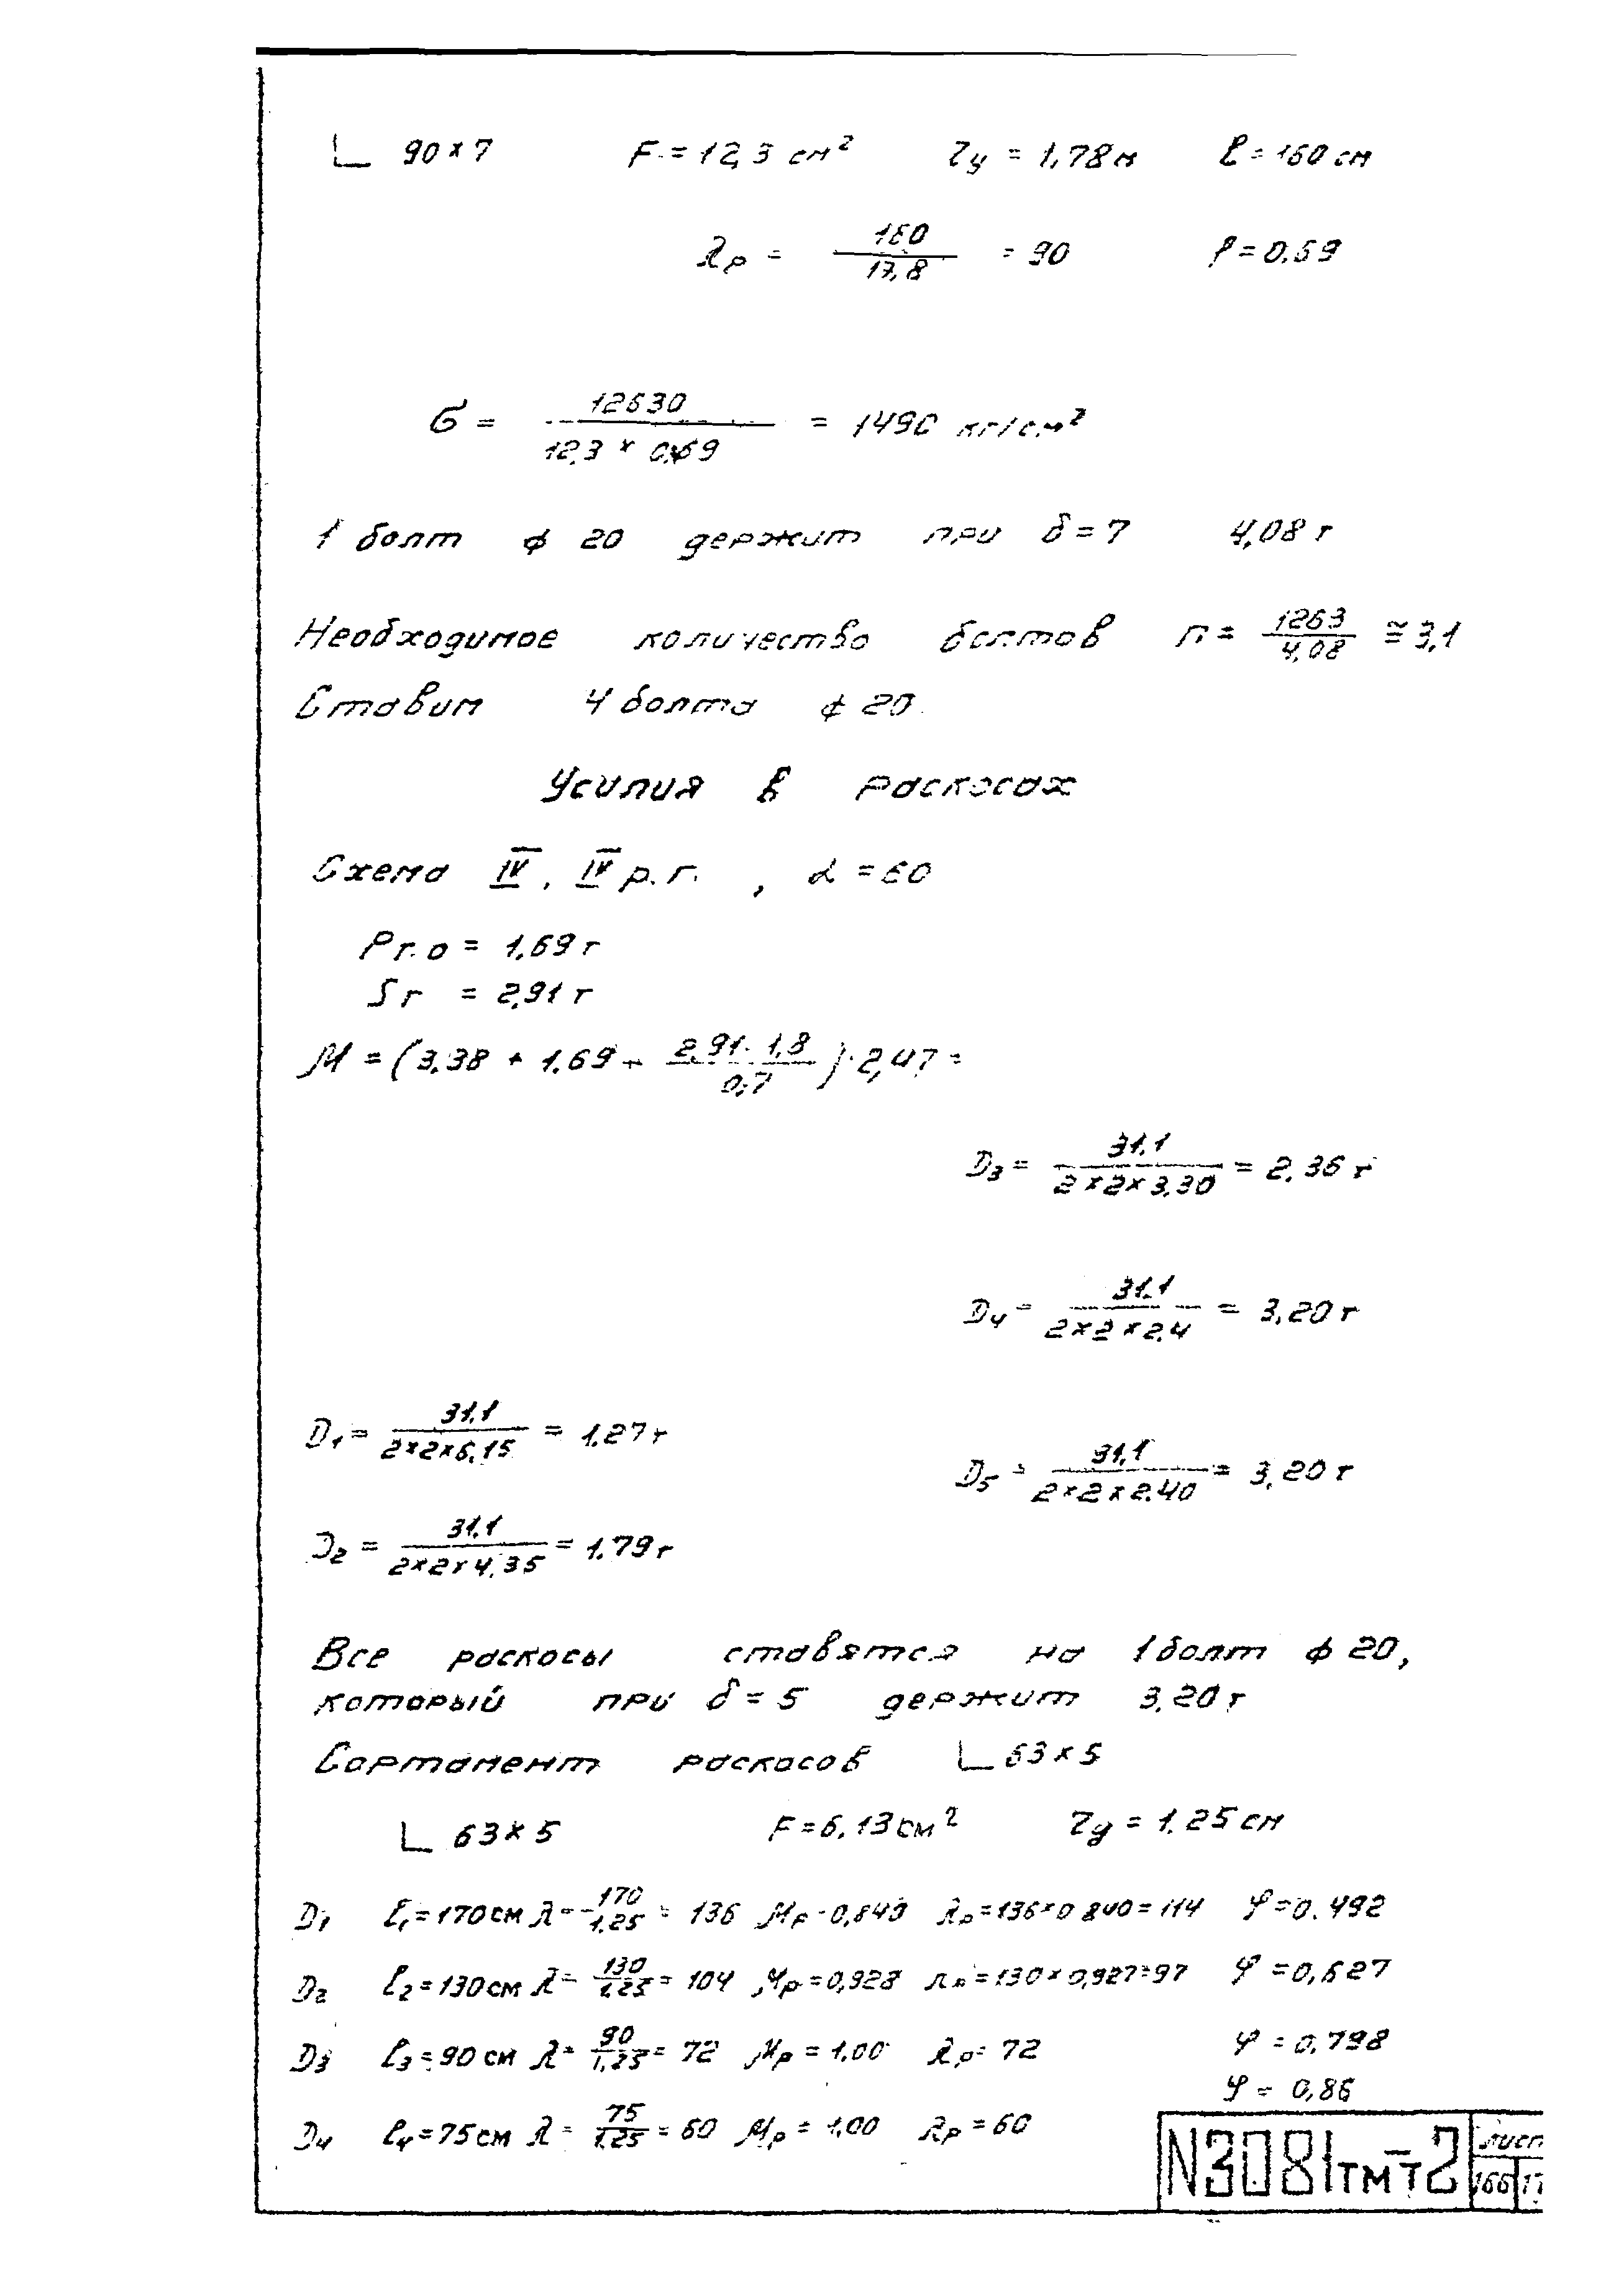 ∟ 90×7 F = 12,3 см² ry = 1,78м ℓ = 160 см
λр = 160/17,8 = 90 φ = 0,69
σ = 12630/(12,3 × 0,69) = 1490 кг/см²
1 болт ф 20 держит при δ = 7 4,08 т
Необходимое количество болтов n = 1263/4,08 ≅ 3,1
Ставим 4 болта ф 20.
Усилия в раскосах
Схема IV, IV р.г. , α = 60
Pг.о = 1,69 т
Sг = 2,91 т
M = (3,38 + 1,69 + 2,91·1,8/0,7)·2,47 =
D3 = 31,1/(2×2×3,30) = 2,36 т
D4 = 31,1/(2×2×2,4) = 3,20 т
D1 = 31,1/(2×2×6,15) = 1,27 т
D5 = 31,1/(2×2×2,40) = 3,20 т
D2 = 31,1/(2×2×4,35) = 1,79 т
Все раскосы ставятся на 1 болт ф 20,
который при δ = 5 держит 3,20 т
Сортамент раскосов ∟ 63×5
∟ 63×5 F = 6,13 см² ry = 1,25 см
D1 ℓ1 = 170 см λ = 170/1,25 = 136 Mр = 0,840 λр = 136×0,840 = 114 φ = 0,492
D2 ℓ2 = 130 см λ = 130/1,25 = 104 Mр = 0,928 λр = 130×0,927 = 97 φ = 0,627
D3 ℓ3 = 90 см λ = 90/1,25 = 72 Mр = 1,00 λр = 72 φ = 0,798
φ = 0,86
D4 ℓ4 = 75 см λ = 75/1,25 = 60 Mр = 1,00 λр = 60
N3081тм-т2
лист
166